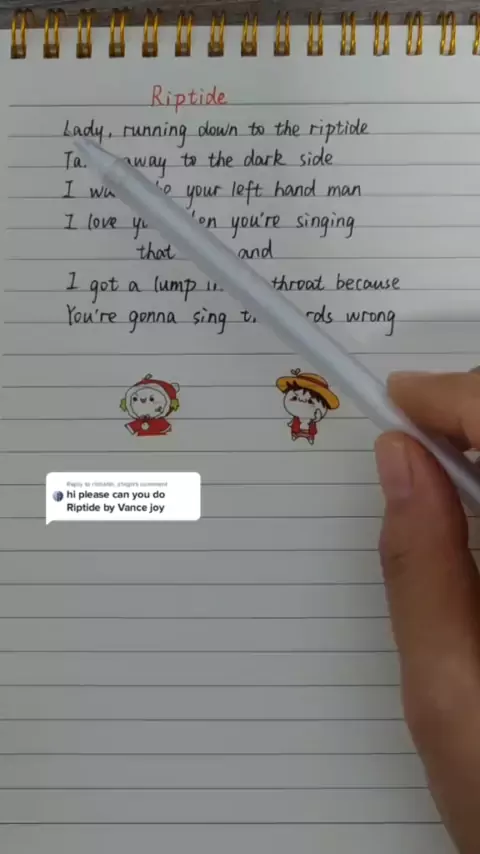 Riptide
Lady, running down to the riptide
away to the dark side
I your left hand man
I love you're singing
that and
I got a lump throat because
You're gonna sing wrong
Reply to comment
hi please can you do
Riptide by Vance joy